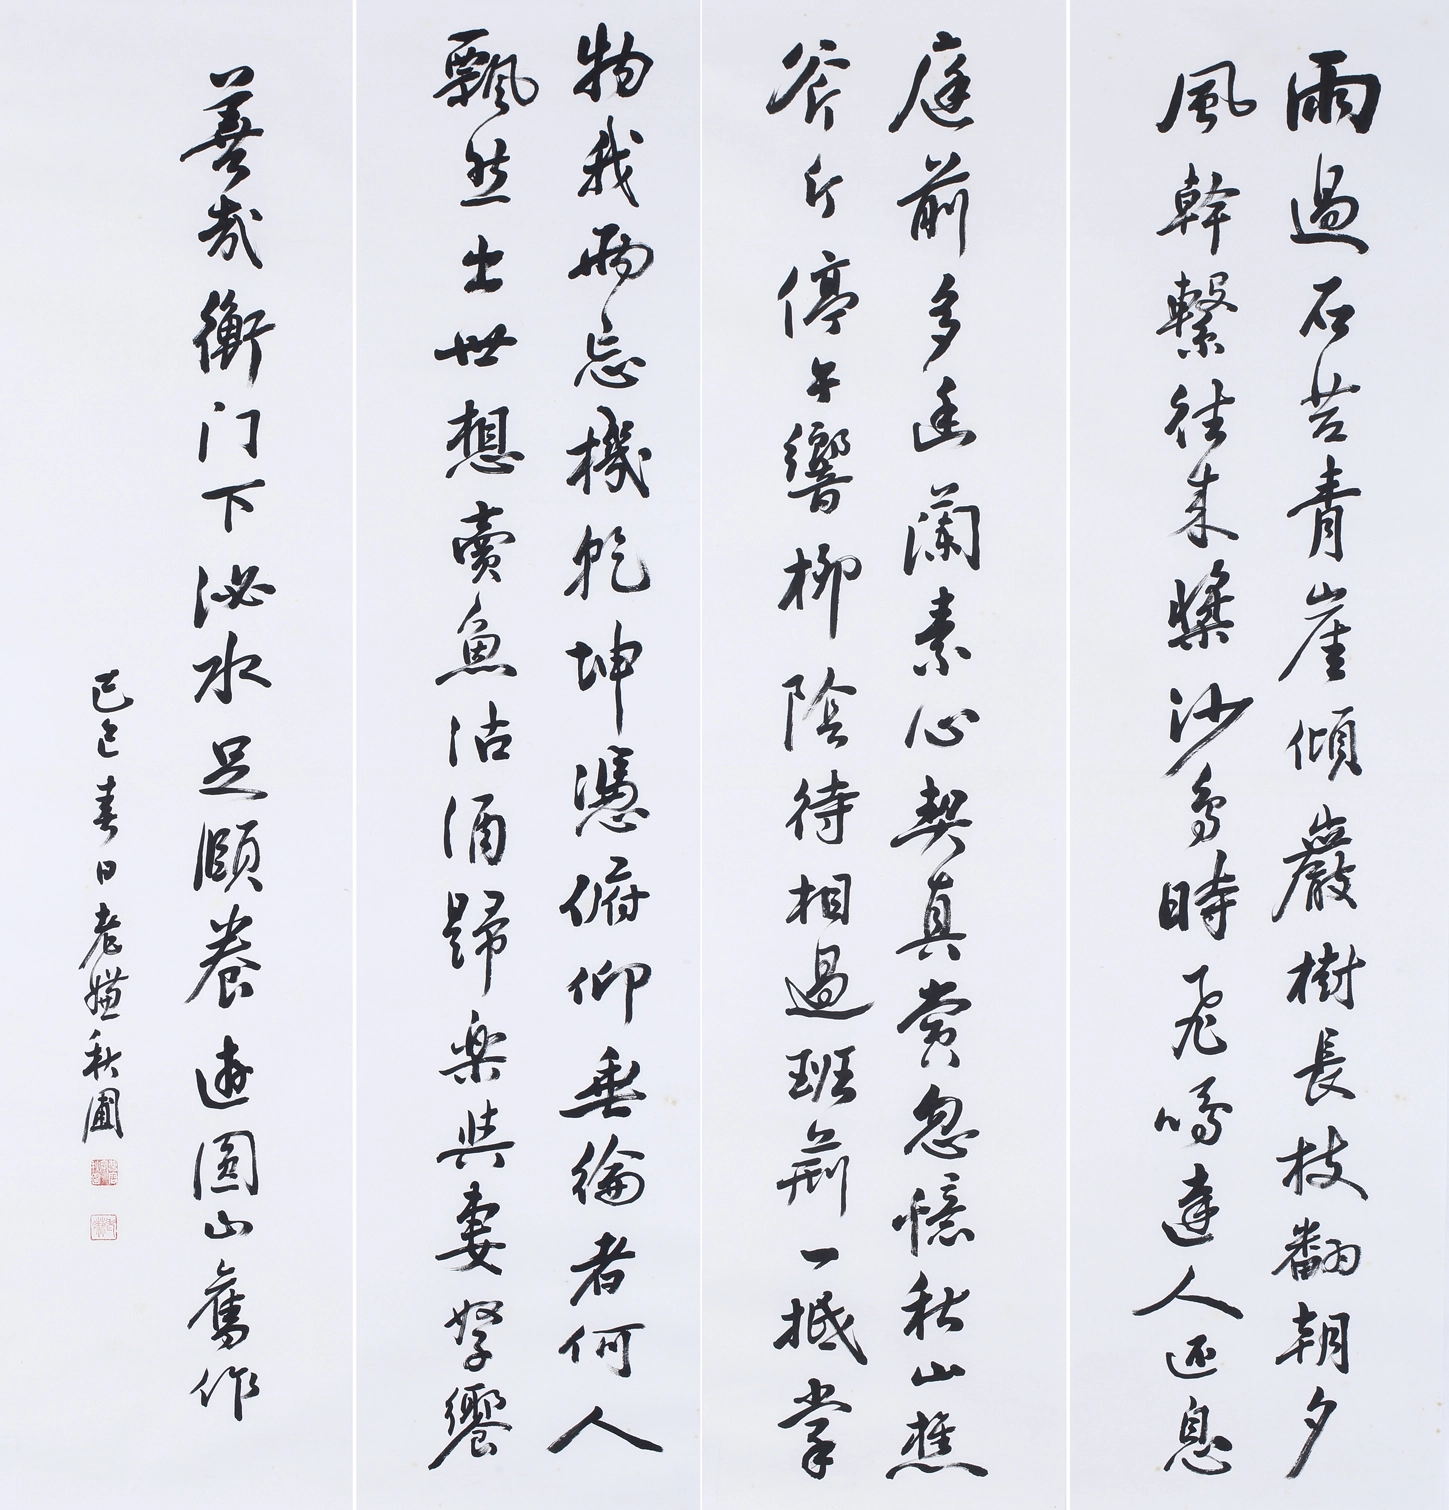 雨過石苔青崖傾巖樹長枝翻朝夕
風幹繫往來槳沙鳥時飛鳴達人還息
庭前多蘭素心契真賞忽憶秋山樵
斧斤停午響柳陰待相過班荊一抵掌
物我兩忘機乾坤憑俯仰垂綸者何人
飄然出世想賣魚沽酒歸樂與妻孥饗
善哉衡门下泌水足頤養遊圖山舊作
己巳春日老嫌秋圃